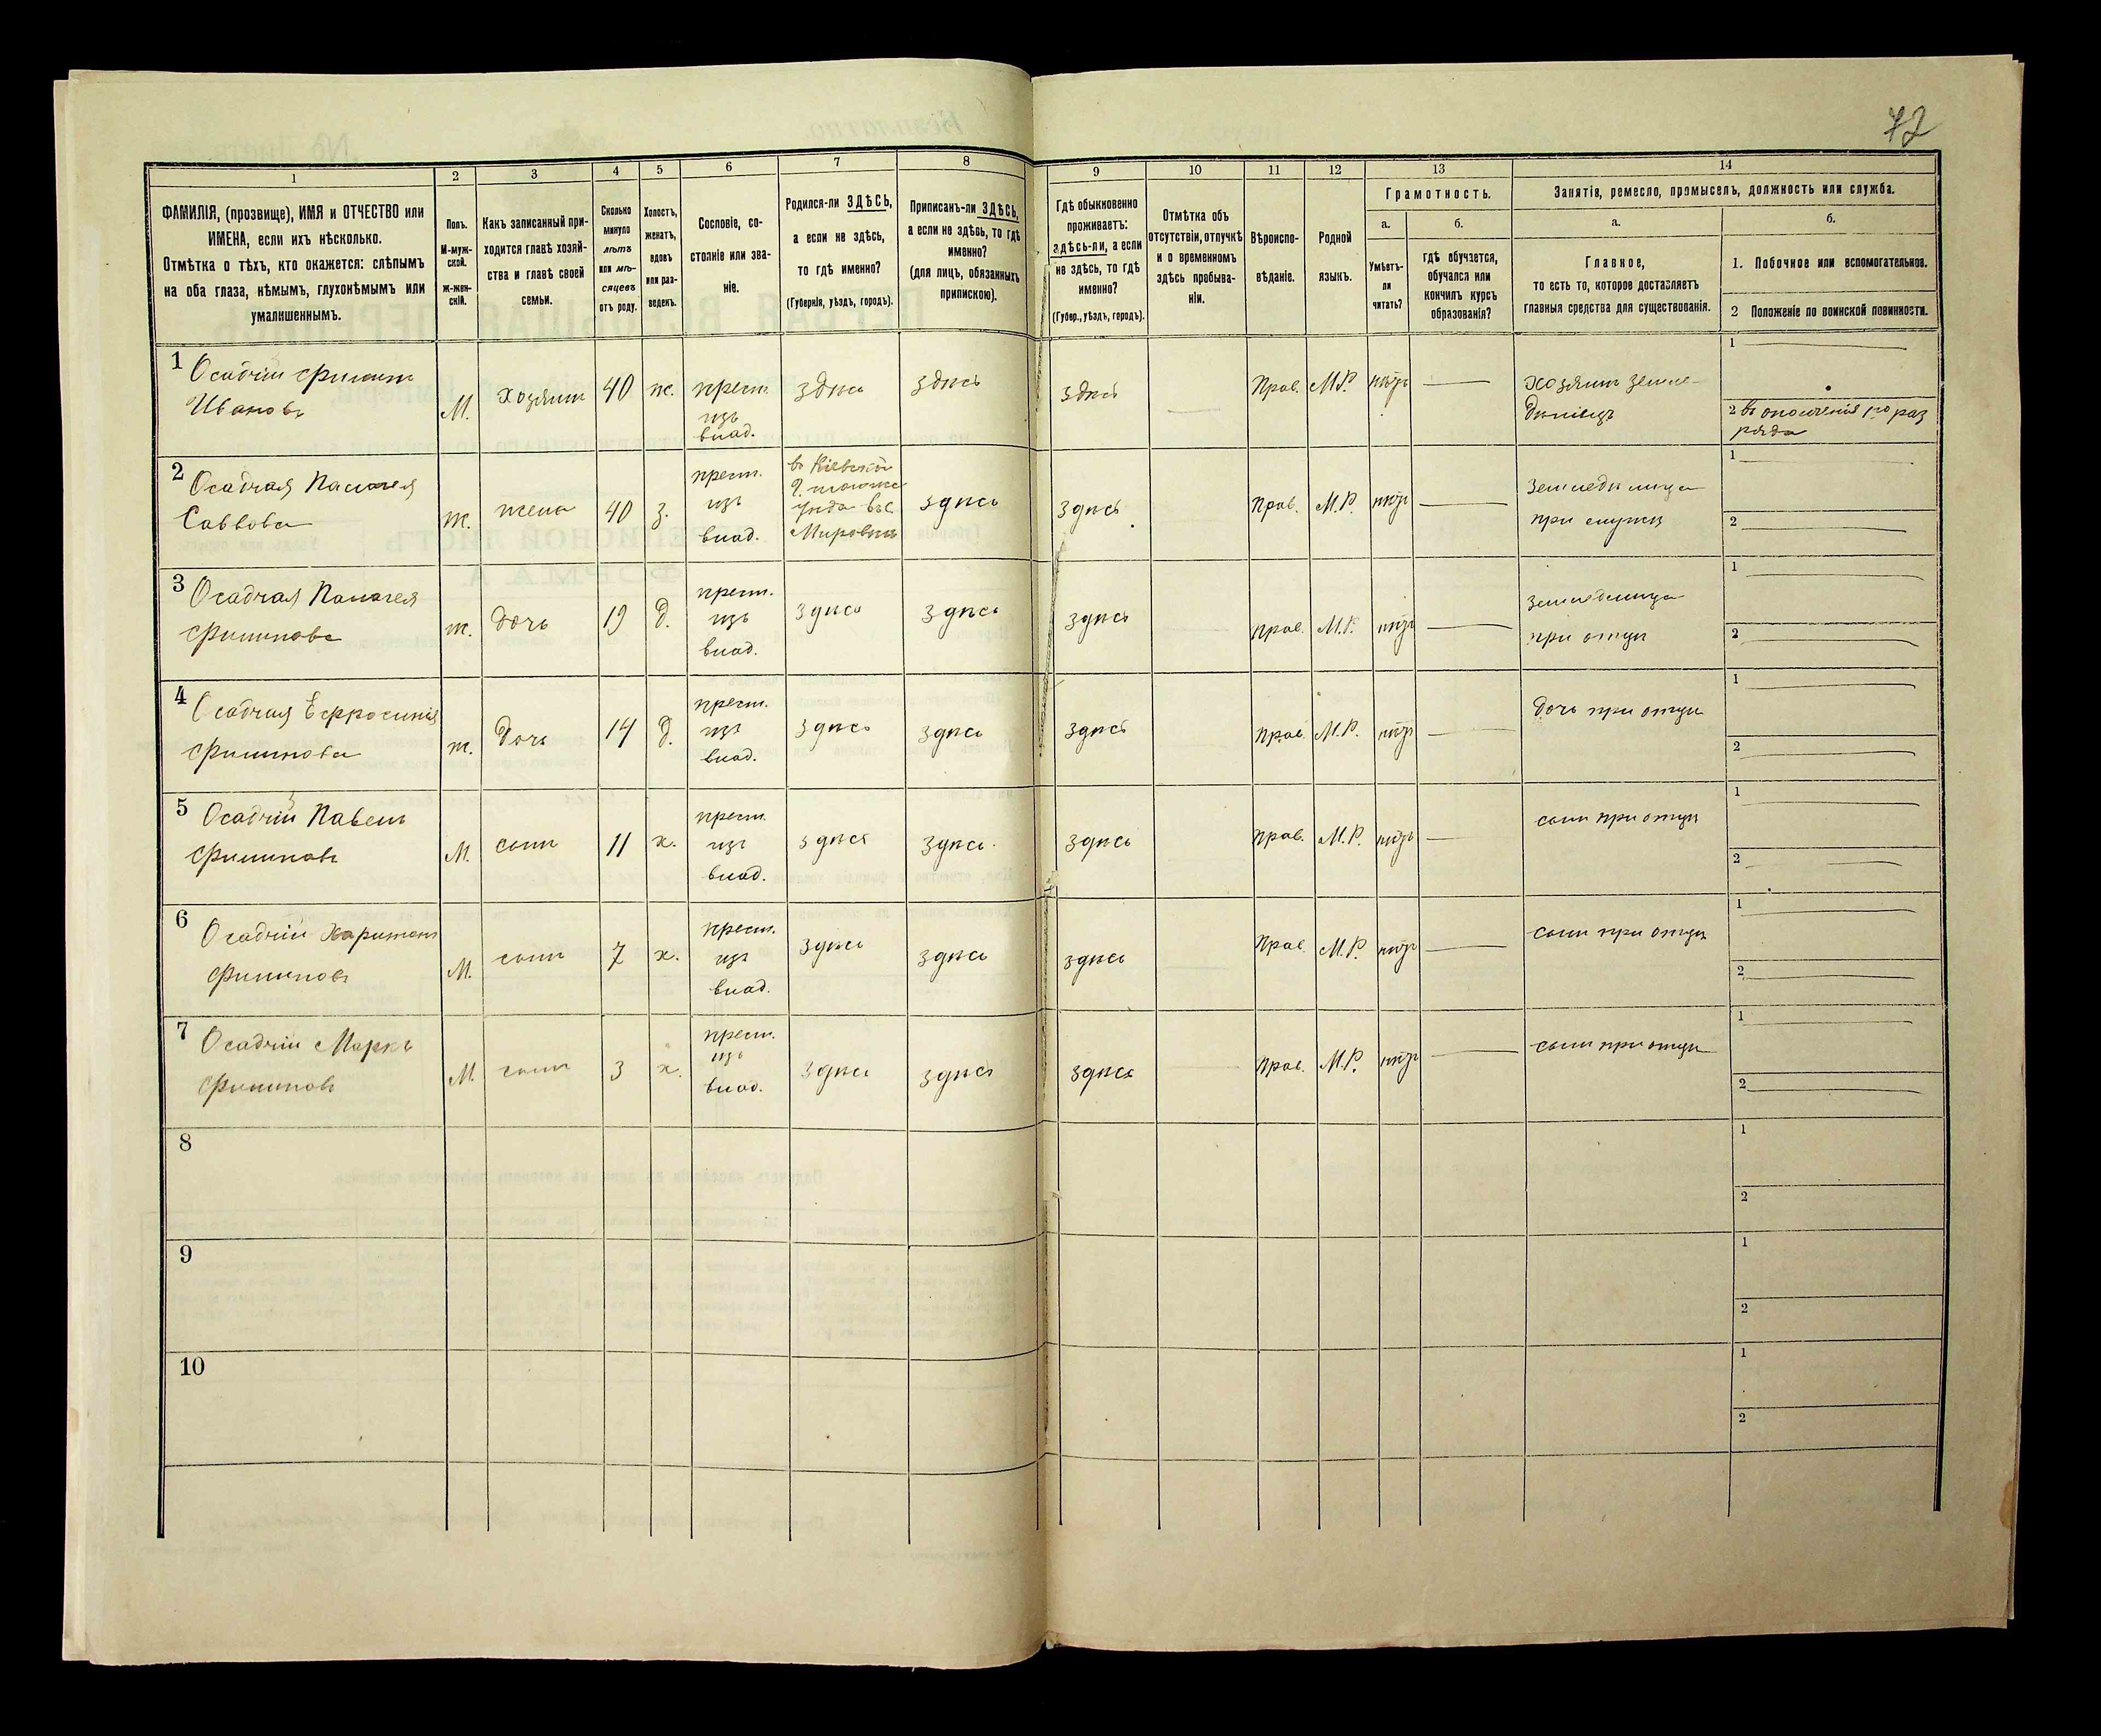 72
1 2 3 4 5 6 7 8 9 10 11 12 13 14
ФАМИЛІЯ, (прозвище), ИМЯ и ОТЧЕСТВО или
ИМЕНА, если ихъ нѣсколько.
Отмѣтка о тѣхъ, кто окажется: слѣпымъ
на оба глаза, нѣмымъ, глухонѣмымъ или
умалишеннымъ.
Полъ.
М-муж-
ской.
Ж-жен-
скій.
Какъ записанный при-
ходится главѣ хозяй-
ства и главѣ своей
семьи.
Сколько
минуло
лѣтъ
или мѣ-
сяцевъ
отъ роду.
Холостъ,
женатъ,
вдовъ
или раз-
веденъ.
Сословіе, со-
стояніе или зва-
ніе.
Родился-ли ЗДѢСЬ,
а если не здѣсь,
то гдѣ именно?
(Губернія, уѣздъ, городъ).
Приписанъ-ли ЗДѢСЬ,
а если не здѣсь, то гдѣ
именно?
(для лицъ, обязанныхъ
припискою).
Гдѣ обыкновенно
проживаетъ:
здѣсь-ли, а если
не здѣсь, то гдѣ
именно?
(Губер., уѣздъ, городъ).
Отмѣтка объ
отсутствіи, отлучкѣ
и о временномъ
здѣсь пребыва-
ніи.
Вѣроиспо-
вѣданіе.
Родной
языкъ.
Грамотность.
а.
Умѣетъ-
ли
читать?
б.
гдѣ обучается,
обучался или
кончилъ курсъ
образованія?
Занятія, ремесло, промыселъ, должность или служба.
а.
Главное,
то есть то, которое доставляетъ
главныя средства для существованія.
б.
1. Побочное или вспомогательное.
2 Положеніе по воинской повинности.
1 Осадчій Филипъ
Ивановъ
М. хозяинъ 40 ж. крест.
изъ
влад.
здѣсь здѣсь здѣсь Прав. М.Р. нѣтъ хозяинъ земле-
дѣлецъ
1
2 въ ополченія
2 Осадчая
Саввова
ж. жена 40 з. крест.
изъ
влад.
въ Кіевской
уѣзда въ с
Мировкѣ
здѣсь здѣсь Прав. М.Р. нѣтъ земледѣлица
при мужѣ
1
2
3 Осадчая Палагея
Филипова
ж. дочь 19 д. крест.
изъ
влад.
здѣсь здѣсь здѣсь прав. М.Р. нѣтъ земледѣлица
при отцѣ
1
2
4 Осадчая Ефросинія
Филипова
ж. дочь 14 д. крест.
изъ
влад.
здѣсь здѣсь здѣсь прав. М.Р. нѣтъ дочь при отцѣ
1
2
5 Осадчій Павелъ
Филиповъ
М. сынъ 11 х. крест.
изъ
влад.
здѣсь здѣсь здѣсь прав. М.Р. нѣтъ сынъ при отцѣ
1
2
6 Осадчій Харитонъ
Филиповъ
М. сынъ 7 х. крест.
изъ
влад.
здѣсь здѣсь здѣсь Прав. М.Р. нѣтъ сынъ при отцѣ
1
2
7 Осадчій Маркъ
Филиповъ
М. сынъ 3 х. крест.
изъ
влад.
здѣсь здѣсь здѣсь Прав. М.Р. нѣтъ сынъ при отцѣ
1
2
8
1
2
9
1
2
10
1
2